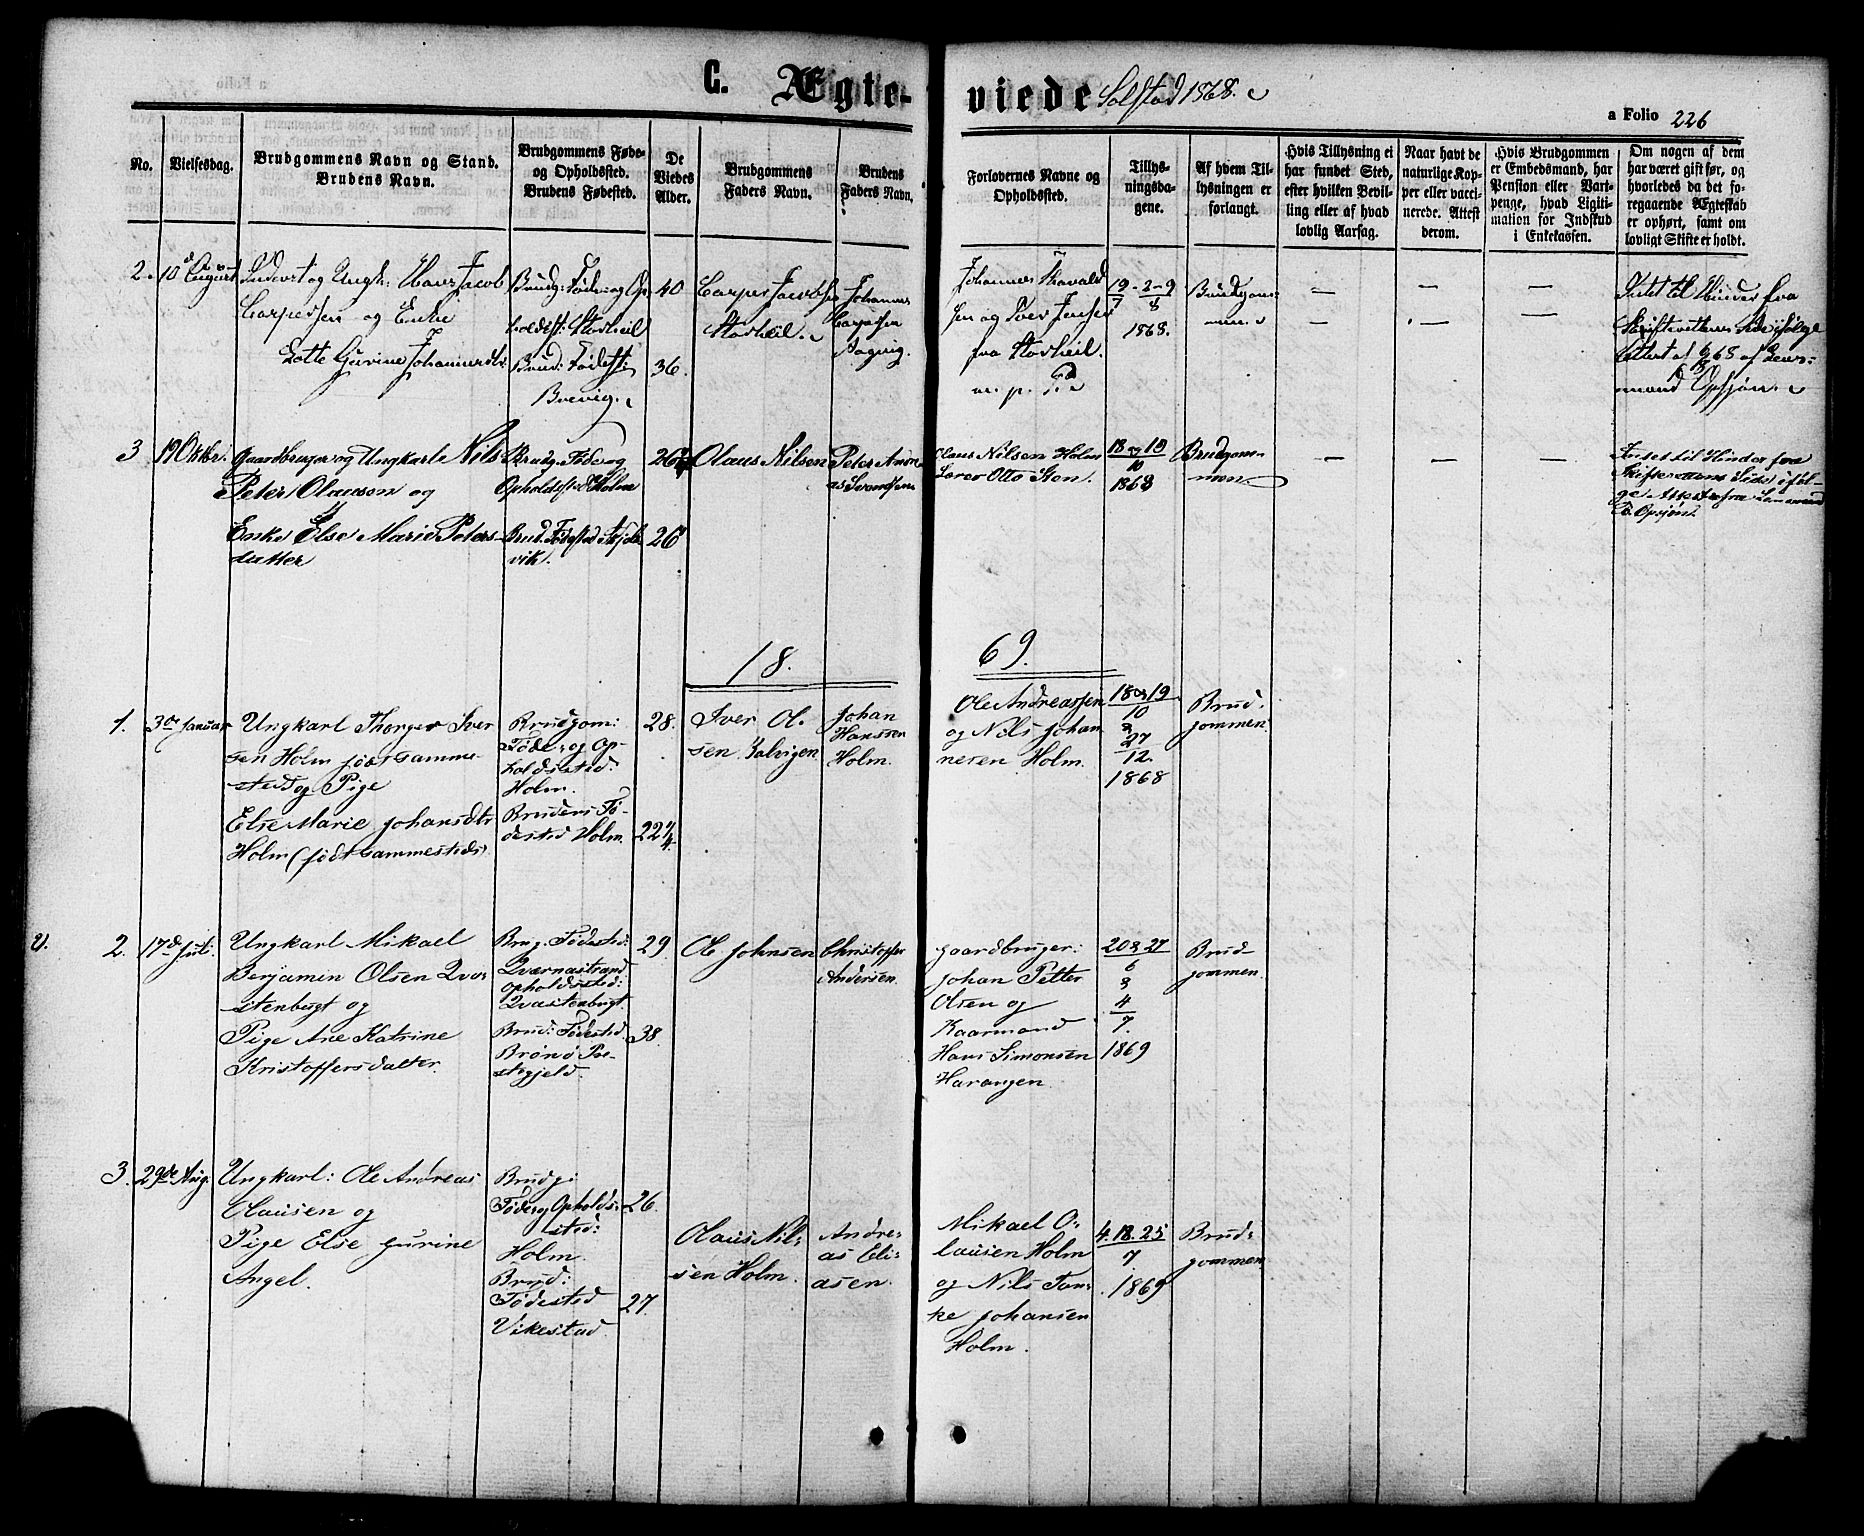 C. Ægte-viede Solstad 1868.
a Folio 226
No.
Vielsesdag.
Brudgommens Navn og Stand.
Brudens Navn.
Brudgommens Føde-
og Opholdssted.
Brudens Fødested.
De
Viedes
Alder.
Brudgommens
Faders Navn.
Brudens
Faders Navn.
Forlovernes Navne og
Opholdssted.
Tillys-
ningsda-
gene.
Af hvem Til-
lysningen er
forlangt.
Hvis Tillysning ei
har fundet Sted,
efter hvilken Bevil-
ling eller af hvad
lovlig Aarsag.
Naar havt de
naturlige Kop-
per eller vacci-
nerede. Attest
derom.
Hvis Brudgommen
er Embedsmand, har
Pension eller Vart-
penge, hvad Ligiti-
mation for Indskud
i Enkekassen.
Om nogen af dem
har været gift før, og
hvorledes da det fo-
regaaende Ægteskab
er ophørt, samt om
lovligt Skifte er holdt.
2.
10 August
og Ungk: Hans Jacob
Caspersen og Enke
Lotte Gurine Johannesdtr
Brudg: Føde og Op-
holdsst: Storheil
Brud: Fødest:
Brevig.
40
36.
Casper Jacobsen
Storheil.
Johannes
Caspersen
19-2-9
7 8
1868.
Johannes
sen og Iver Jensen
fra Storheil.
Brudgom-
men.
Intet til Hinder fra
Skifterettens Side ifølge
Attest af 68 af Lens-
mand Opsjøn.
3
19 Oktbr.
Gaardbruger og Ungkarl Nils
Peter Olausen og
Enke Else Marie Peters-
datter
Brudg. Føde og
Opholdssted Holm
Brud. Fødested
vik.
26
26
Olaus Nilsen
Peter Andre-
as Svendsen
Olaus Nilsen Holm
Lærer Otto Sten.
18 og
10
1868
Brudgom-
men
Intet til Hinder fra
Skifterettens Side iføl-
ge Attest fra Lensmand
E. Opsjøn.
1869.
1.
3die Januar
Ungkarl Thorger Iver
sen Holm født samme-
sted og Pige
Else Marie Johansdtr
Holm (født sammesteds)
Brudgom:
Føde- og Op-
holdssted:
Holm.
Brudens Fø-
dested Holm.
28.
22 1/4
Iver Ol-
sen Kalvigen
Johan
Hansen
Holm.
Ole Andreassen
og Nils Johan
nesen Holm.
18 & 19
10
&
27
12.
1868
Brud-
gommen
2.
17de Juli
Ungkarl Mikael
Benjamin Olsen Qva-
stenbugt og
Pige Ane Katrine
Kristoffersdatter.
Brug. Fødested:
Qværnastrand
Opholdssted:
Qvastenbugt.
Brud: Fødested
Brønø Præ-
stegjeld.
29
38
Ole Johnsen
Christoffer
Andersen.
Gaardbruger:
Johan Petter
Olsen og
Kaarmand
Hans Simonsen
Harangen.
20 & 27
6
&
4
7.
1869
Brud-
gommen
3.
29de Aug.
Ungkarl: Ole Andreas
Olausen og
Pige Else Gurine
Angel.
Brudg:
Føde og Opholds-
sted:
Holm.
Brud:
Fødested
Vikestad.
26.
27.
Olaus Nil-
sen Holm.
Andre-
as Eli-
asen.
Mikael O-
lausen Holm
og Nils Tan-
ke Johansen
Holm.
4. 18. 25
7.
1869
Brud-
gommen